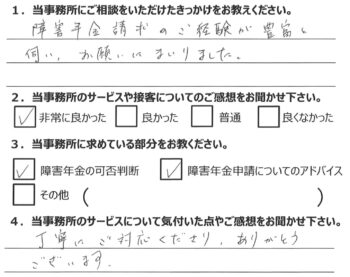 1. 当事務所にご相談をいただけたきっかけをお教えください。
障害年金請求のご経験が豊富と
伺い、お願いにまいりました。
2. 当事務所のサービスや接客についてのご感想をお聞かせ下さい。
☑ 非常に良かった □ 良かった □ 普通 □ 良くなかった
3. 当事務所に求めている部分をお教えください。
☑ 障害年金の可否判断 ☑ 障害年金申請についてのアドバイス
□ その他 ( )
4. 当事務所のサービスについて気付いた点やご感想をお聞かせ下さい。
丁寧にご対応くださり、ありがとう
ございます。